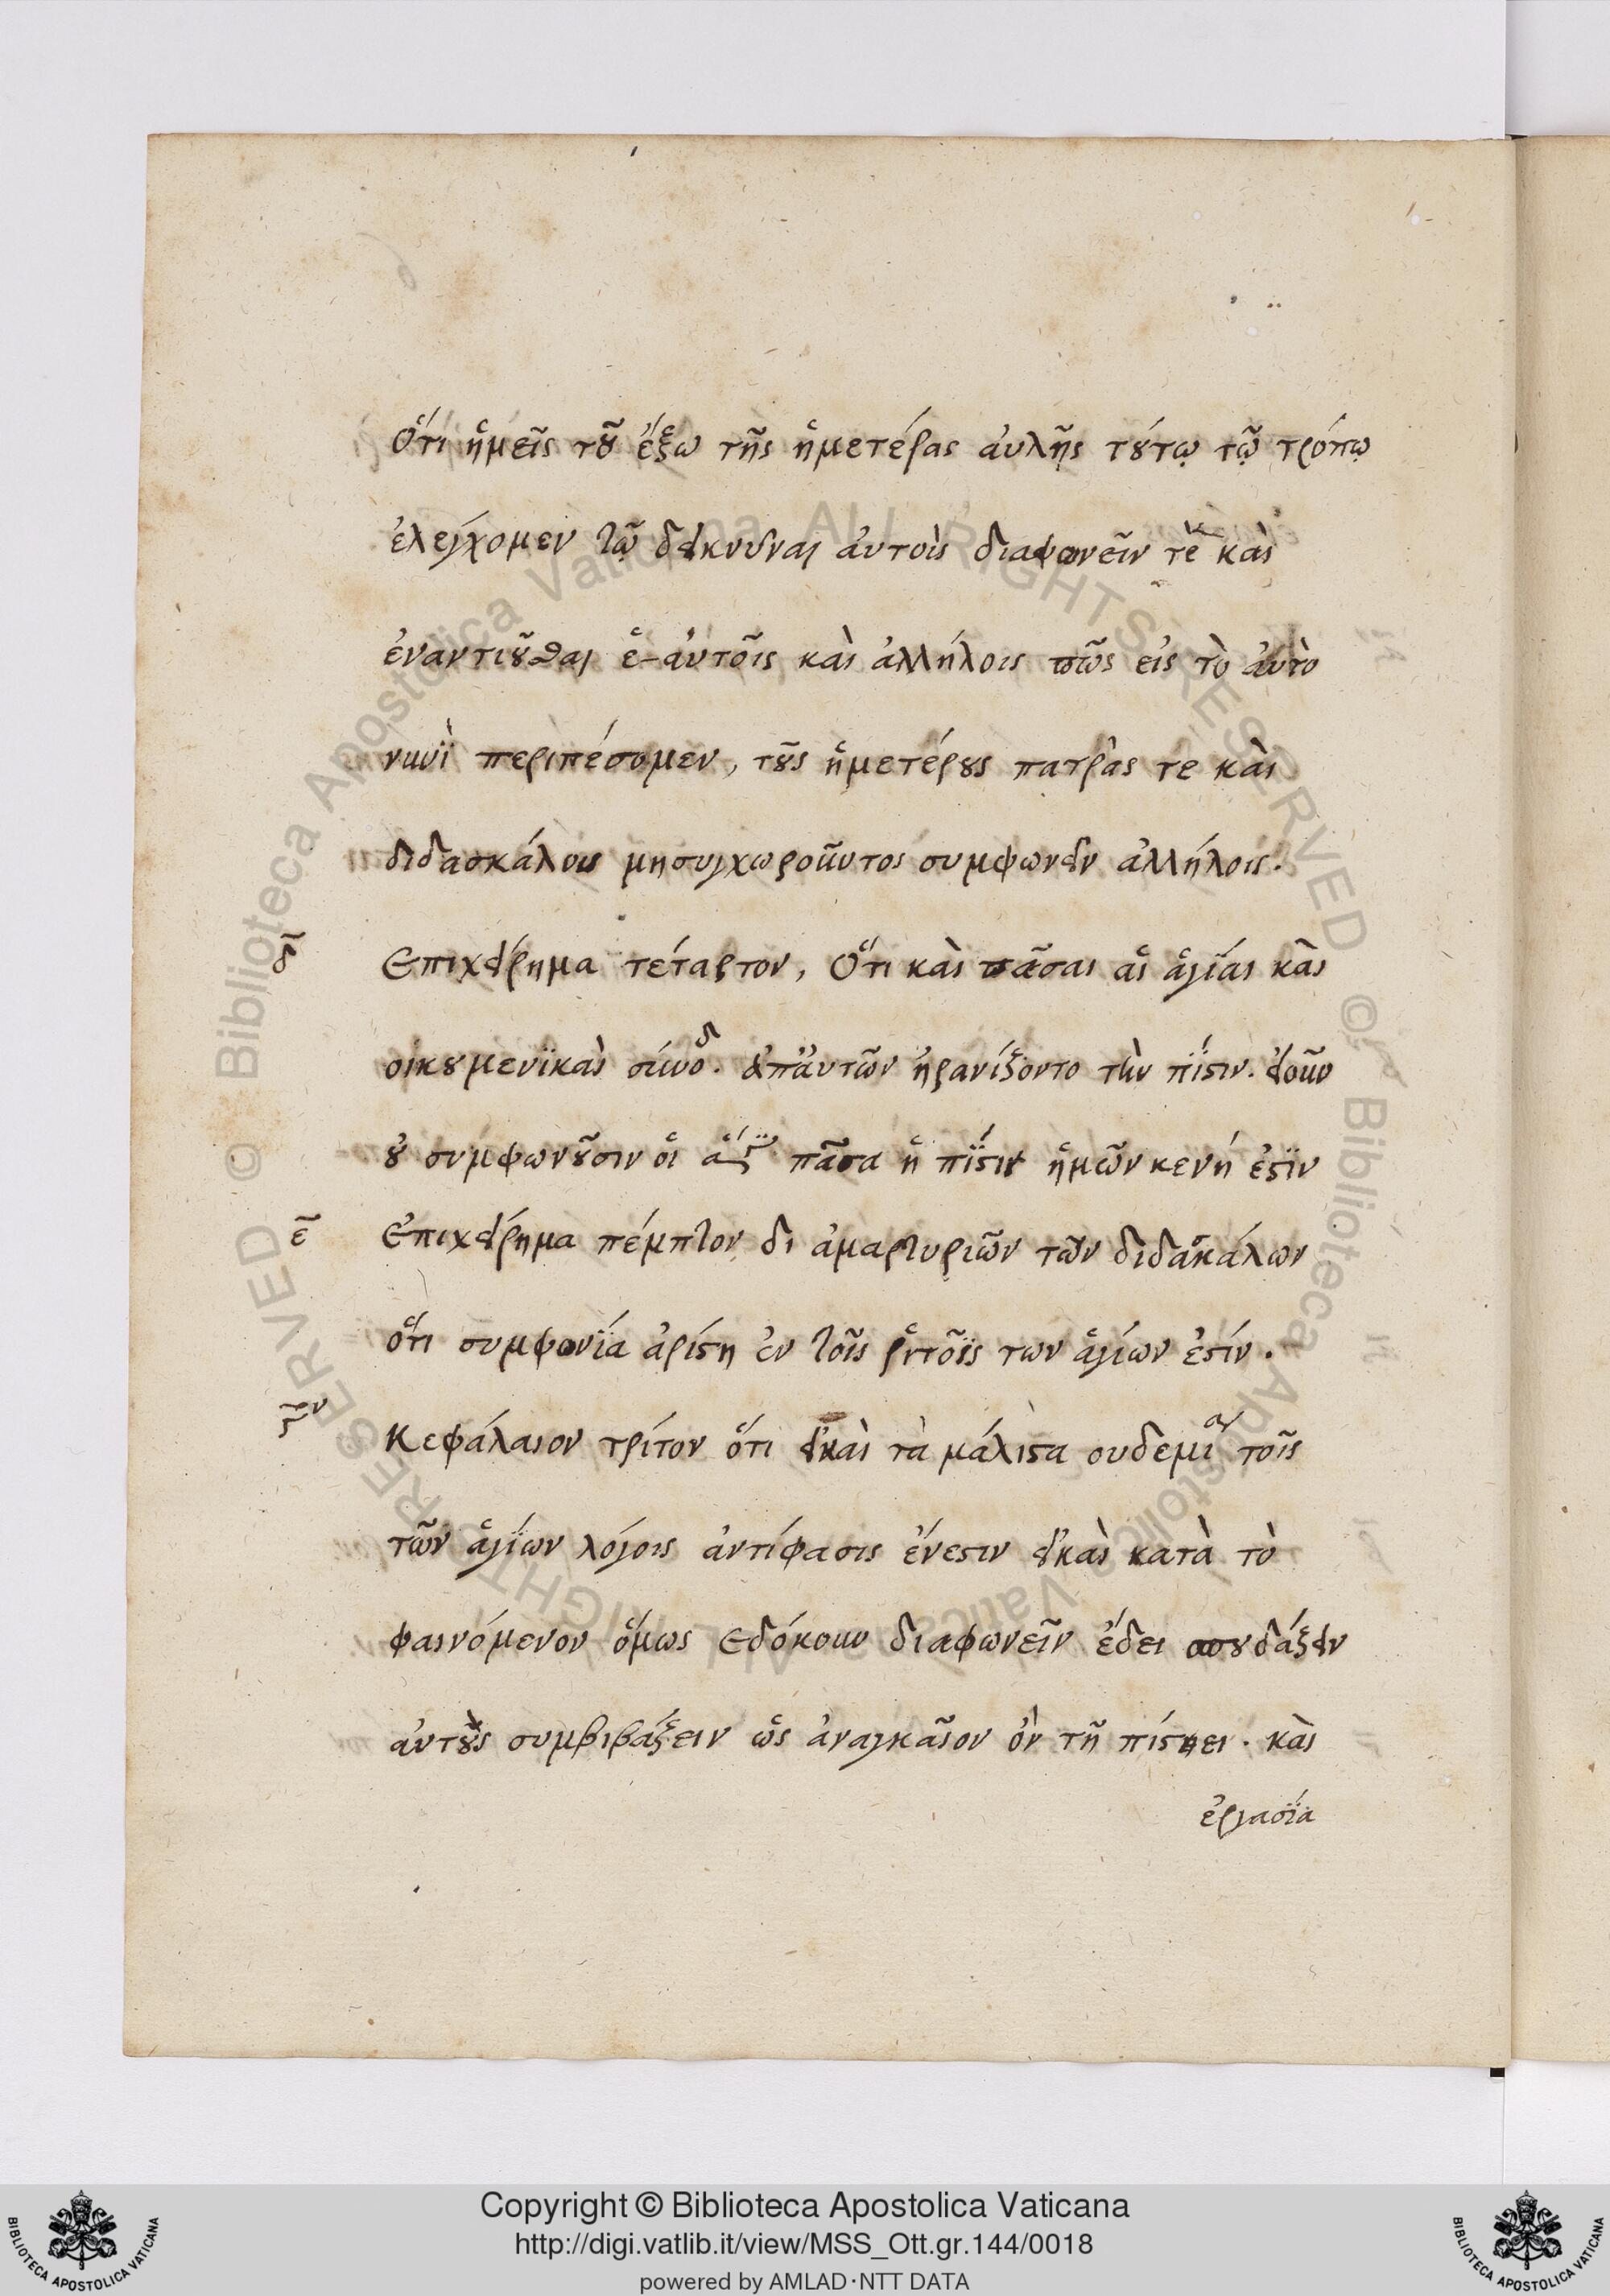 Ὅτι ἡμεῖς τοῦ ἔξω τῆς ἡμετέρας ἀυλῆς τούτῳ τῷ τρόπῳ
ἐλεγχομεν τῷ δεικνῦναι ἀυτοὶς διαφωνεῖν τὲ κὰι
ἐναντιοῦσθαι ἑ-αὐτοῖς καὶ ἀλλήλοις πῶς εἰς τὸ ἀυτὸ
νυνῒ περιπέσομεν, τοῦς ἡμετέρους πατρὰς τε κὰι
διδασκάλους μησυγχωροῦντος συμφωνειν ἀλλήλοις.
δ̃ Επιχείρημα τέταρτον, Ὅτι καὶ πᾶσαι αἱ ἁγίαι κὰι
οἰκουμενϊκαὶ σύνοδ. ἀπἀυτῶν ἠρανίζοντο τὴν πίστιν. εἰοῦν
οὐ συμφωνοῦσιν οἱ πᾶσα ἡ πίστις ἡμῶν κενή ἐστϊν
ε̃ Ἐπιχείρημα πέμπτον δι ἀμαρτυριῶν τῶν διδασκάλων
ὅτι συμφωνία ἀρίστη ἐν τοῖς ῥητοῖς των ἁγίων ἐστίν.
Κεφάλαιον τρίτον ὅτι εἰκαὶ τὰ μάλιστα ουδεμία τοῖς
τῶν ἁγίων λόγοις ἀντίφασις ἔνεστιν εἰκαὶ κατὰ τὸ
φαινόμενον ὅμως εδόκουν διαφωνεῖν ἔδει σπουδάζειν
ἀυτοὺς συμβιβάζειν ὡς ἀναγκαῖον ὂν τῇ πίστηει. κὰι
ἐργασία
Copyright © Biblioteca Apostolica Vaticana
http://digi.vatlib.it/view/MSS_Ott.gr.144/0018
powered by AMLAD·NTT DATA